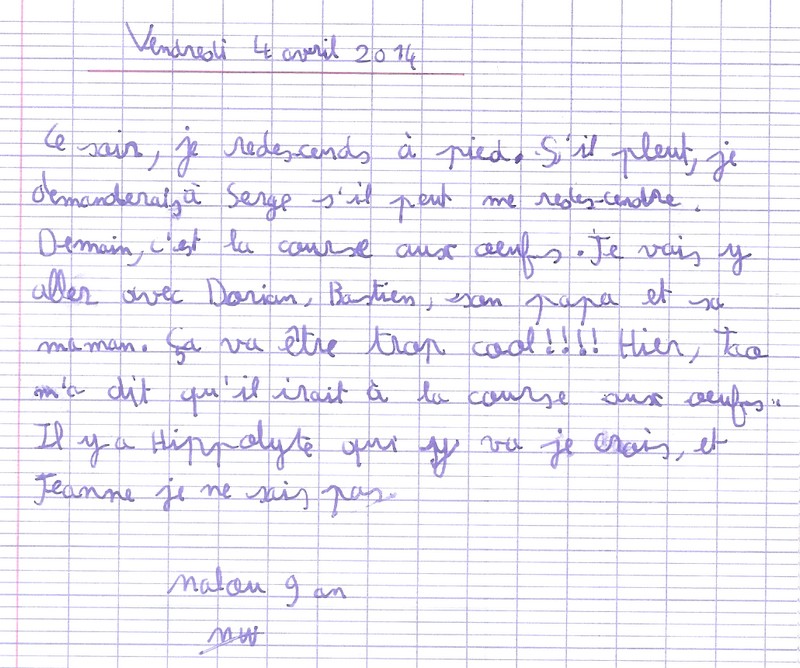 Vendredi 4 avril 2014
Ce soir, je redescends à pied. S'il pleut, je
demanderais à Serge s'il peut me redescendre.
Demain, c'est la course aux œufs. Je vais y
aller avec Dorian, Bastien, son papa et sa
maman. Ça va être trop cool!!!! Hier, Tao
m'a dit qu'il irait à la course aux œufs..
Il y a Hippolyte qui y va je crois, et
Jeanne je ne sais pas.
9 an